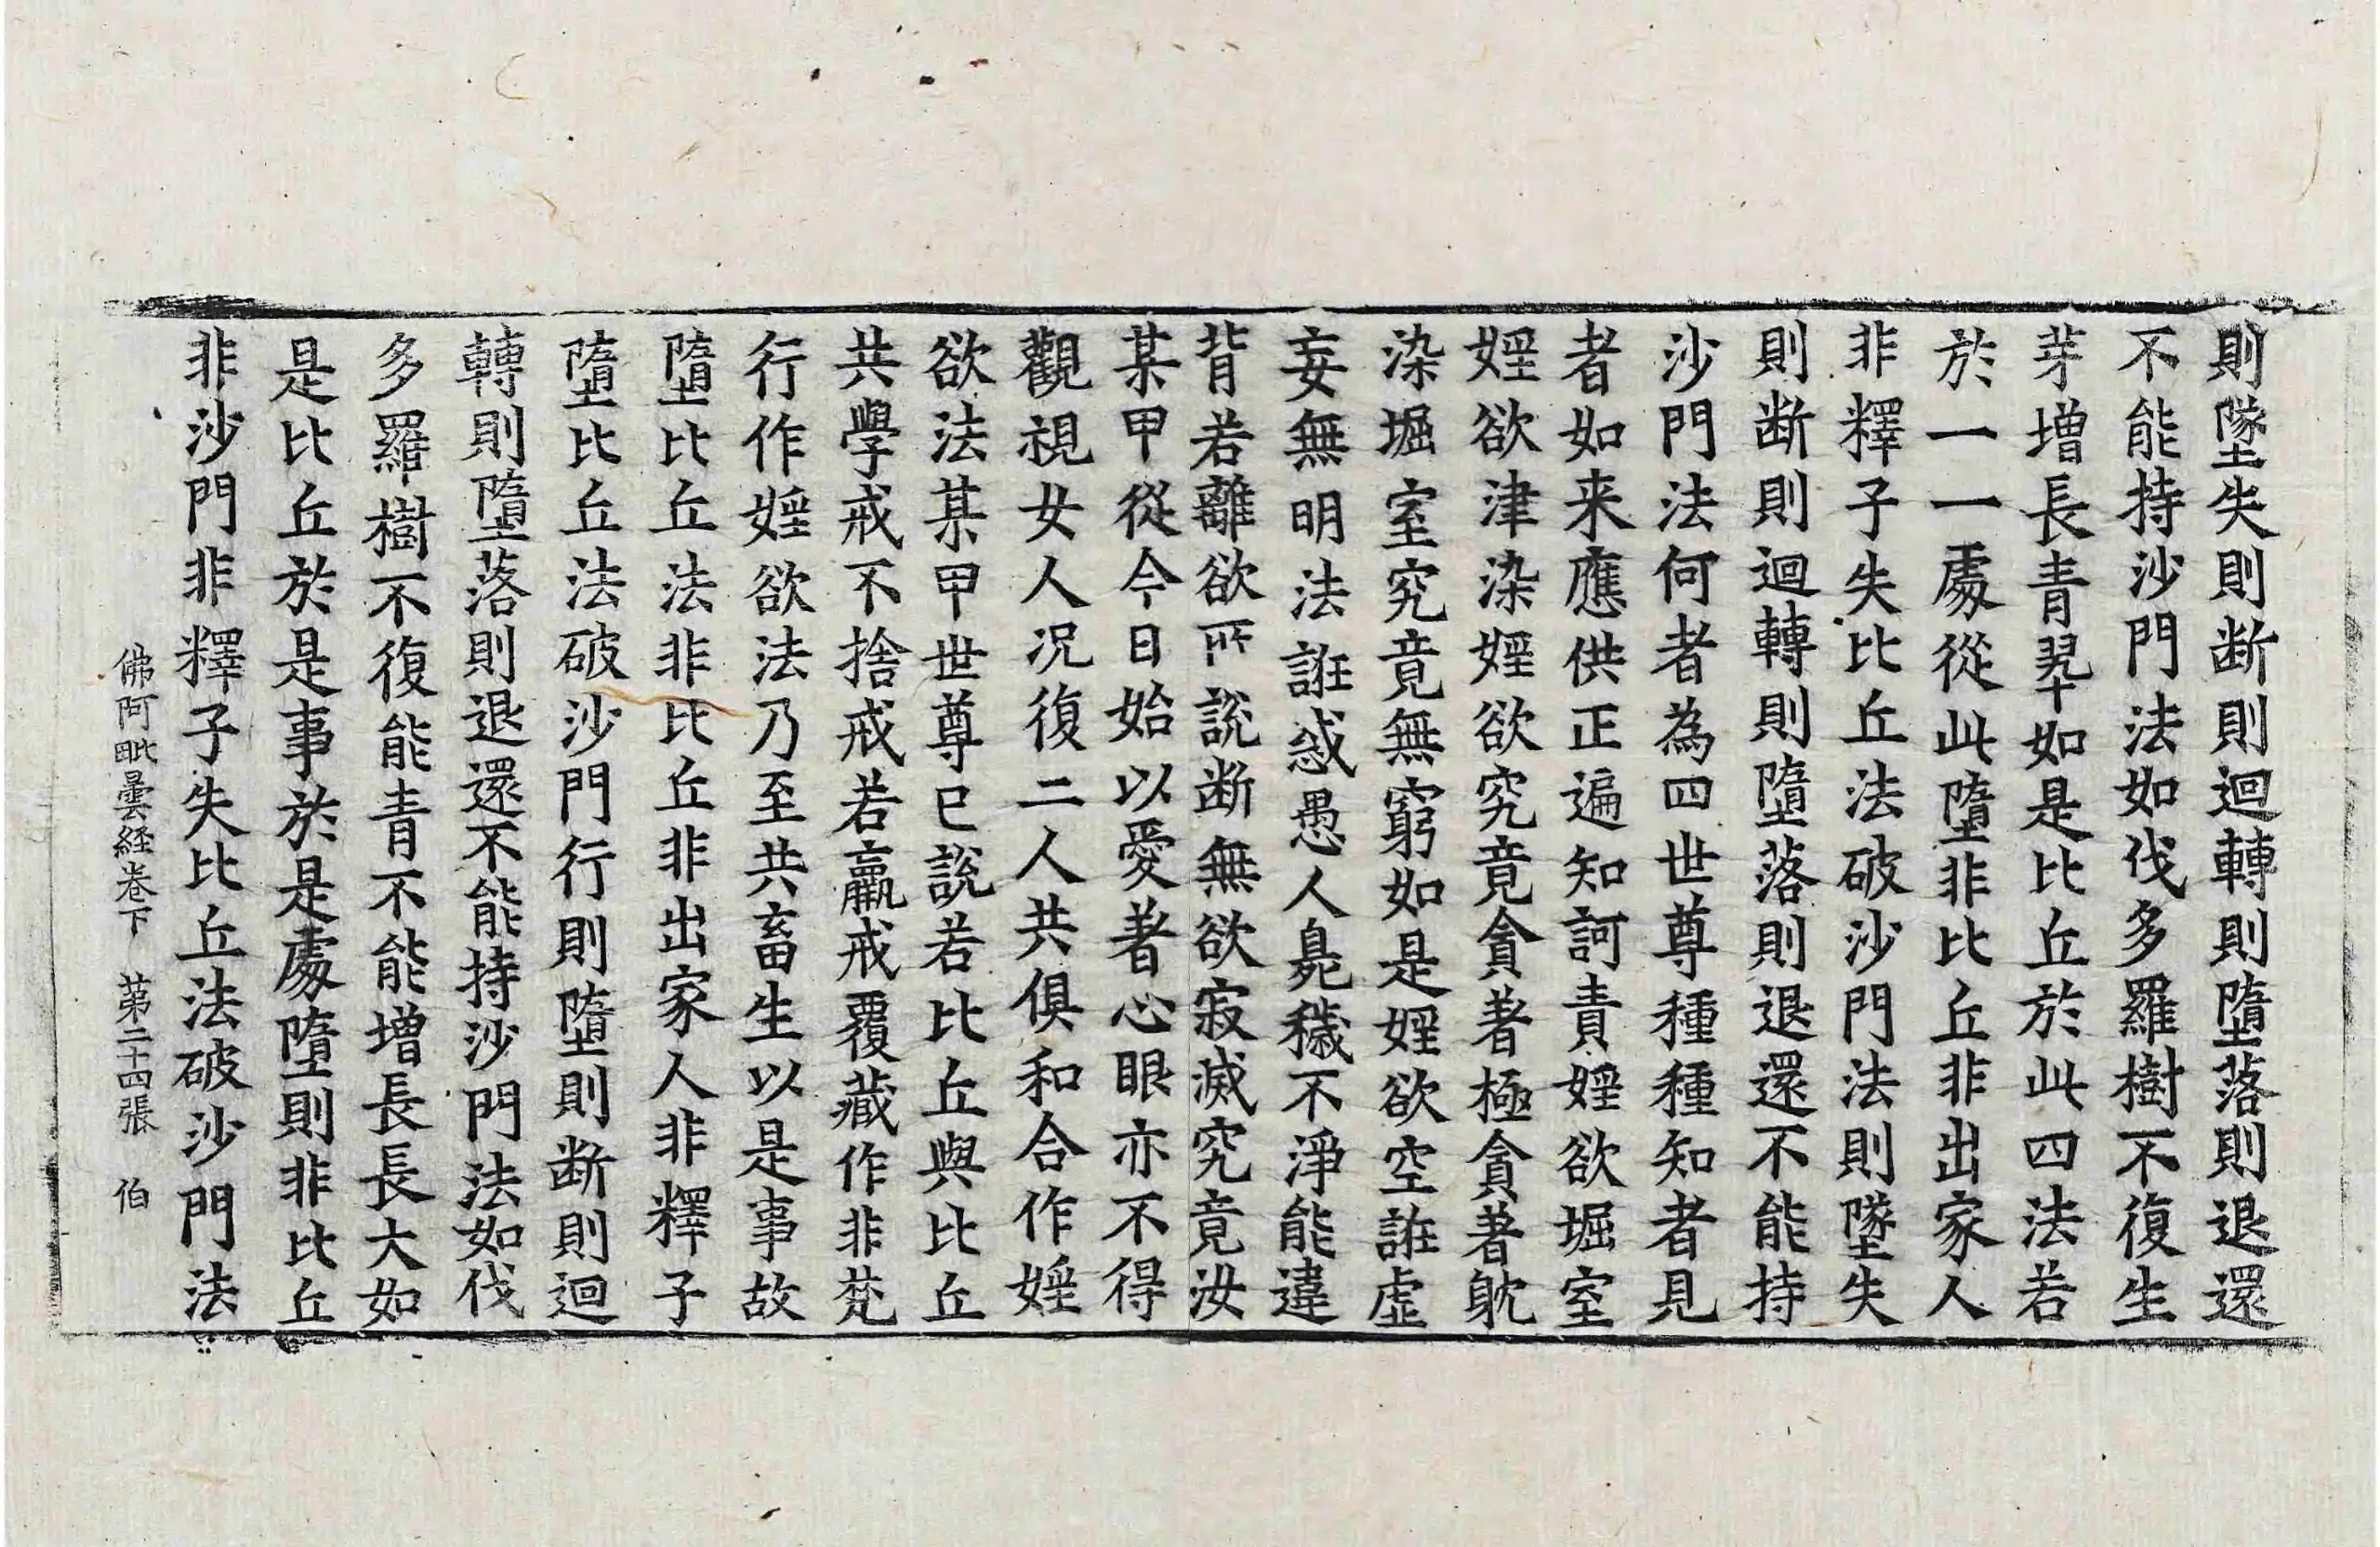 則墜失則断則迴轉則墮落則退還
不能持沙門法如伐多羅樹不復生
芽增長青翠如是比丘於此四法若
於一一處從此墮非比丘非出家人
非釋子失比丘法破沙門法則墜失
則断則迴轉則墮落則退還不能持
沙門法何者為四世尊種種知者見
者如来應供正遍知訶責婬欲堀室
婬欲津染婬欲究竟貪著極貪著躭
染堀室究竟無窮如是婬欲空誑虛
妄無明法誑惑愚人臭穢不淨能違
背若離欲所說断無欲寂滅究竟汝
某甲從今日始以愛著心眼亦不得
觀視女人况復二人共俱和合作婬
欲法某甲世尊已說若比丘與比丘
共學戒不捨戒若羸戒覆藏作非梵
行作婬欲法乃至共畜生以是事故
墮比丘法非比丘非出家人非釋子
墮比丘法破沙門行則墮則断則迴
轉則墮落則退還不能持沙門法如伐
多羅樹不復能青不能增長長大如
是比丘於是事於是處墮則非比丘
非沙門非釋子失比丘法破沙門法
佛阿毗曇経卷下 苐二十四張 伯